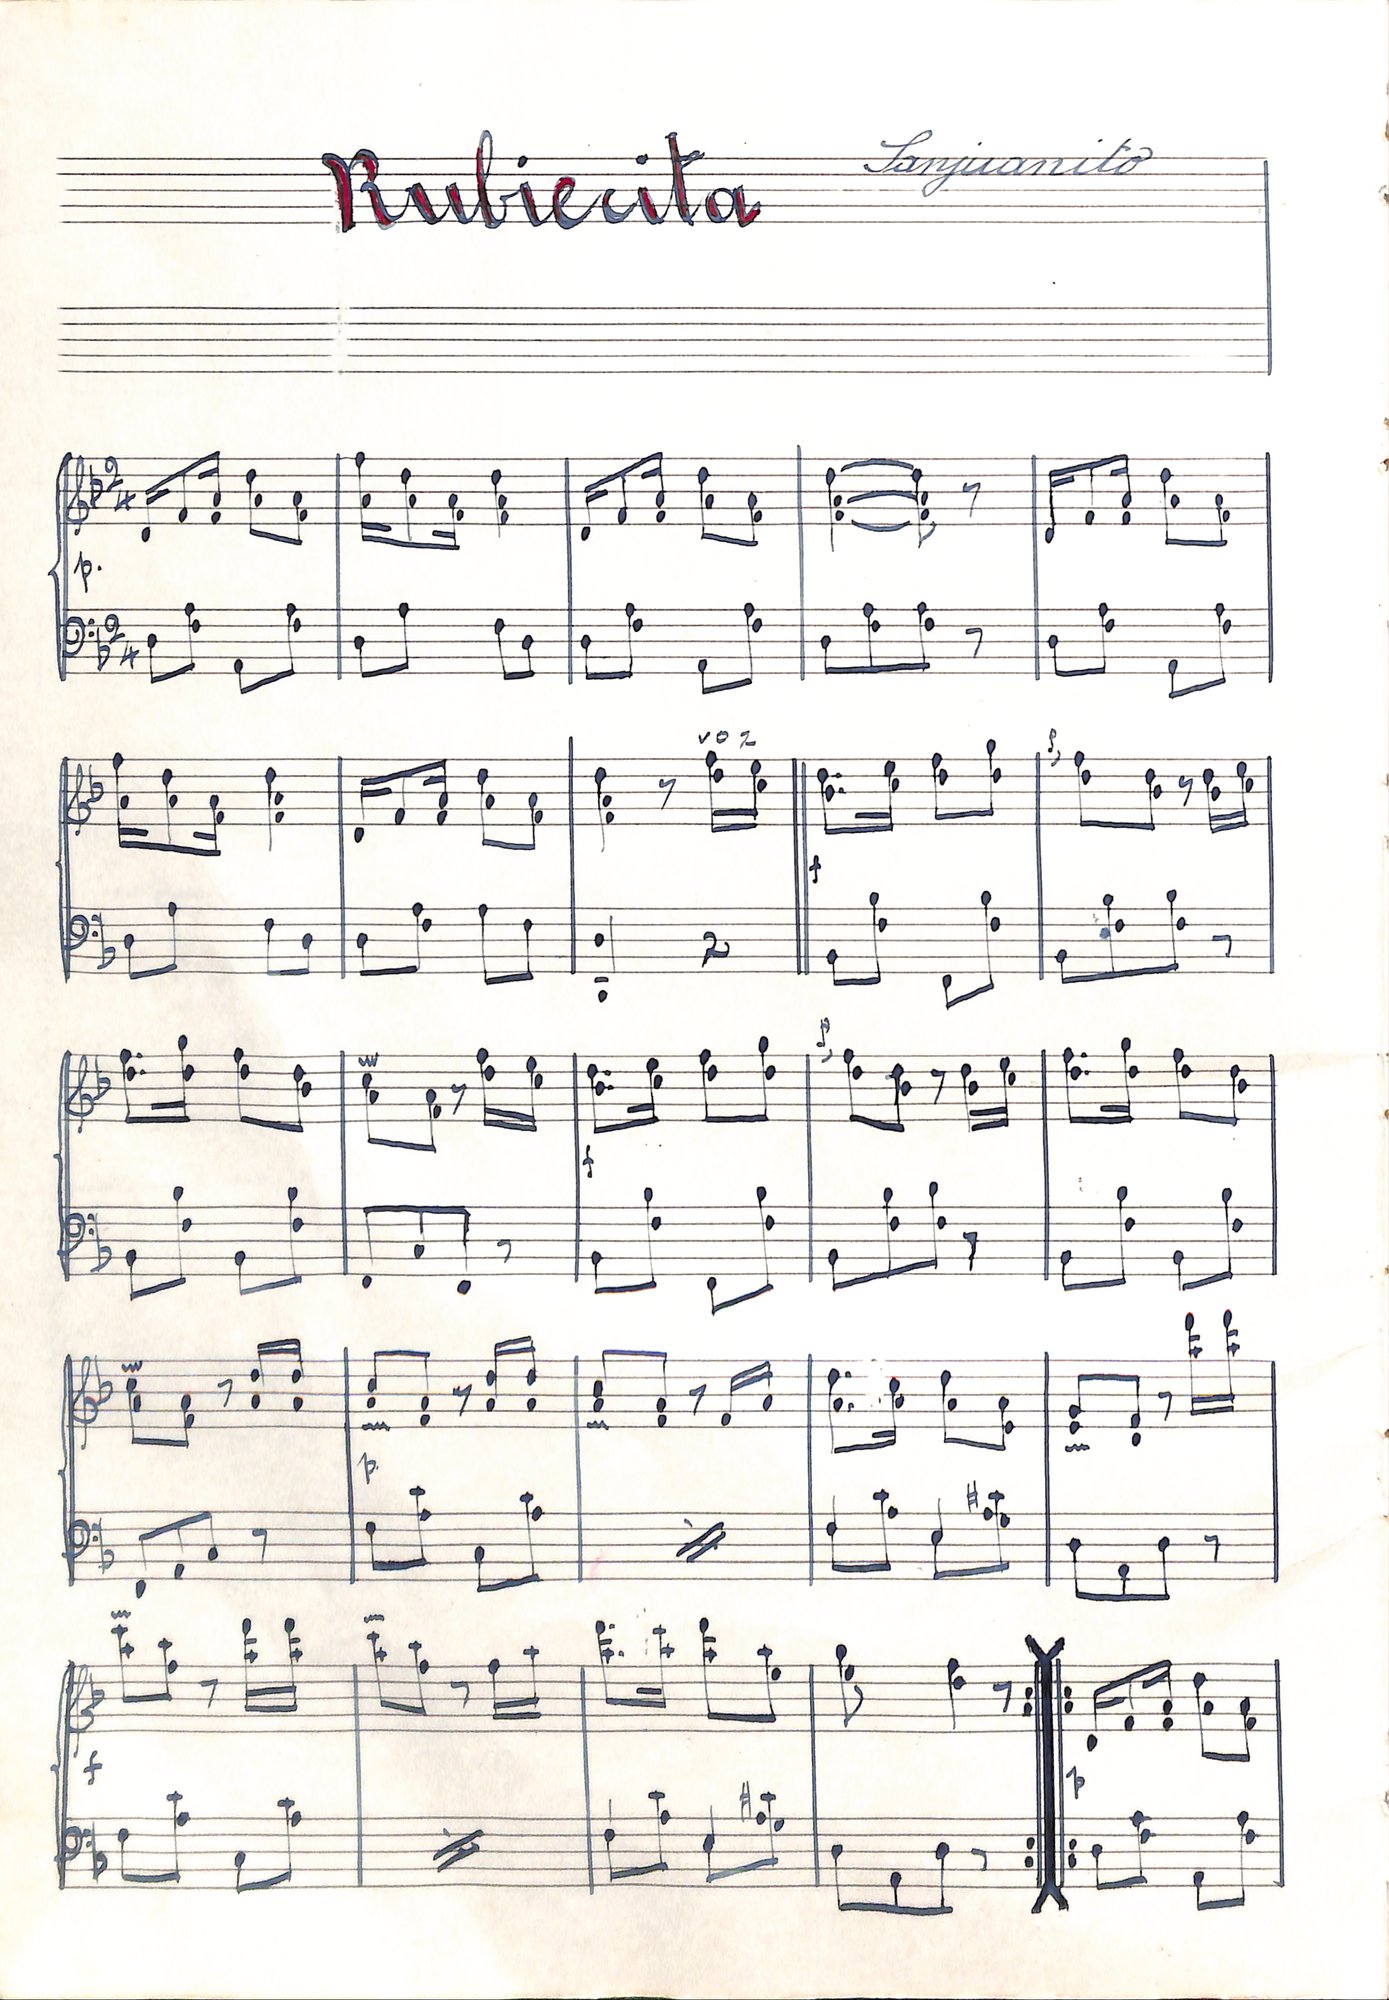 Rubiecita Sanjuanito
2 4
p.
2 4
voz
f
f
p.
f
p